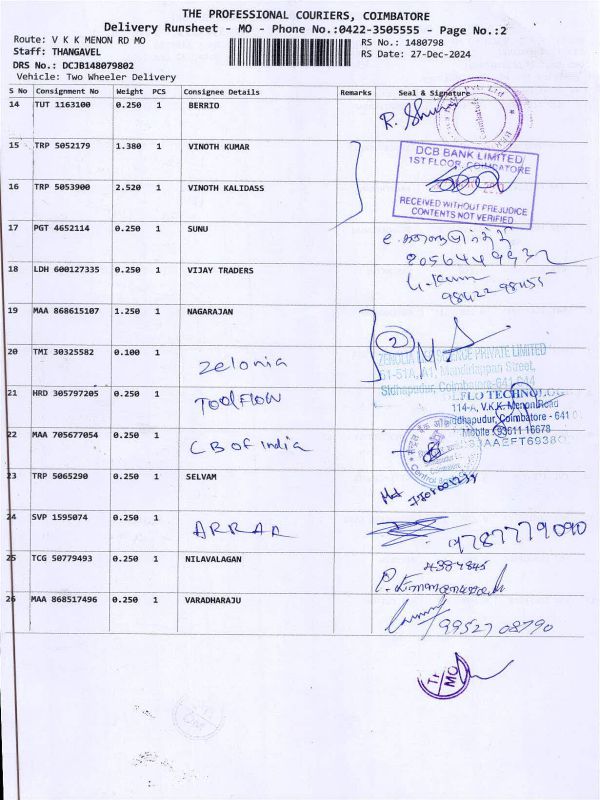 THE PROFESSIONAL COURIERS, COIMBATORE
Delivery Runsheet - MO - Phone No.:0422-3505555 - Page No.:2
Route: V K K MENON RD MO
RS No.: 1480798
Staff: THANGAVEL
RS Date: 27-Dec-2024
DRS No.: DCJB148079802
Vehicle: Two Wheeler Delivery
S No Consignment No Weight PCS Consignee Details Remarks Seal & Signature
14 TUT 1163100 0.250 1 BERRIO
15 TRP 5052179 1.380 1 VINOTH KUMAR
DCB BANK LIMITED
1ST FLOOR, COIMBATORE
16 TRP 5053900 2.520 1 VINOTH KALIDASS
RECEIVED WITHOUT PREJUDICE
CONTENTS NOT VERIFIED
17 PGT 4652114 0.250 1 SUNU
18 LDH 600127335 0.250 1 VIJAY TRADERS
9842298455
19 MAA 868615107 1.250 1 NAGARAJAN
2
20 TMI 30325582 0.100 1 Zelonia
PRIVATE LIMITED
Street,
Sidhapudur, Coimbatore
21 HRD 305797205 0.250 1 TOOLFLOW
FLO TECHNOLOG
114-A, V.K.K. Menon Road
Siddhapudur, Coimbatore - 641 0
Mobile : 93611 16678
22 MAA 705677054 0.250 1 CB of India
23 TRP 5065290 0.250 1 SELVAM
24 SVP 1595074 0.250 1 ARRAA
9787779090
25 TCG 50779493 0.250 1 NILAVALAGAN
26 MAA 868517496 0.250 1 VARADHARAJU
9952708790
MO